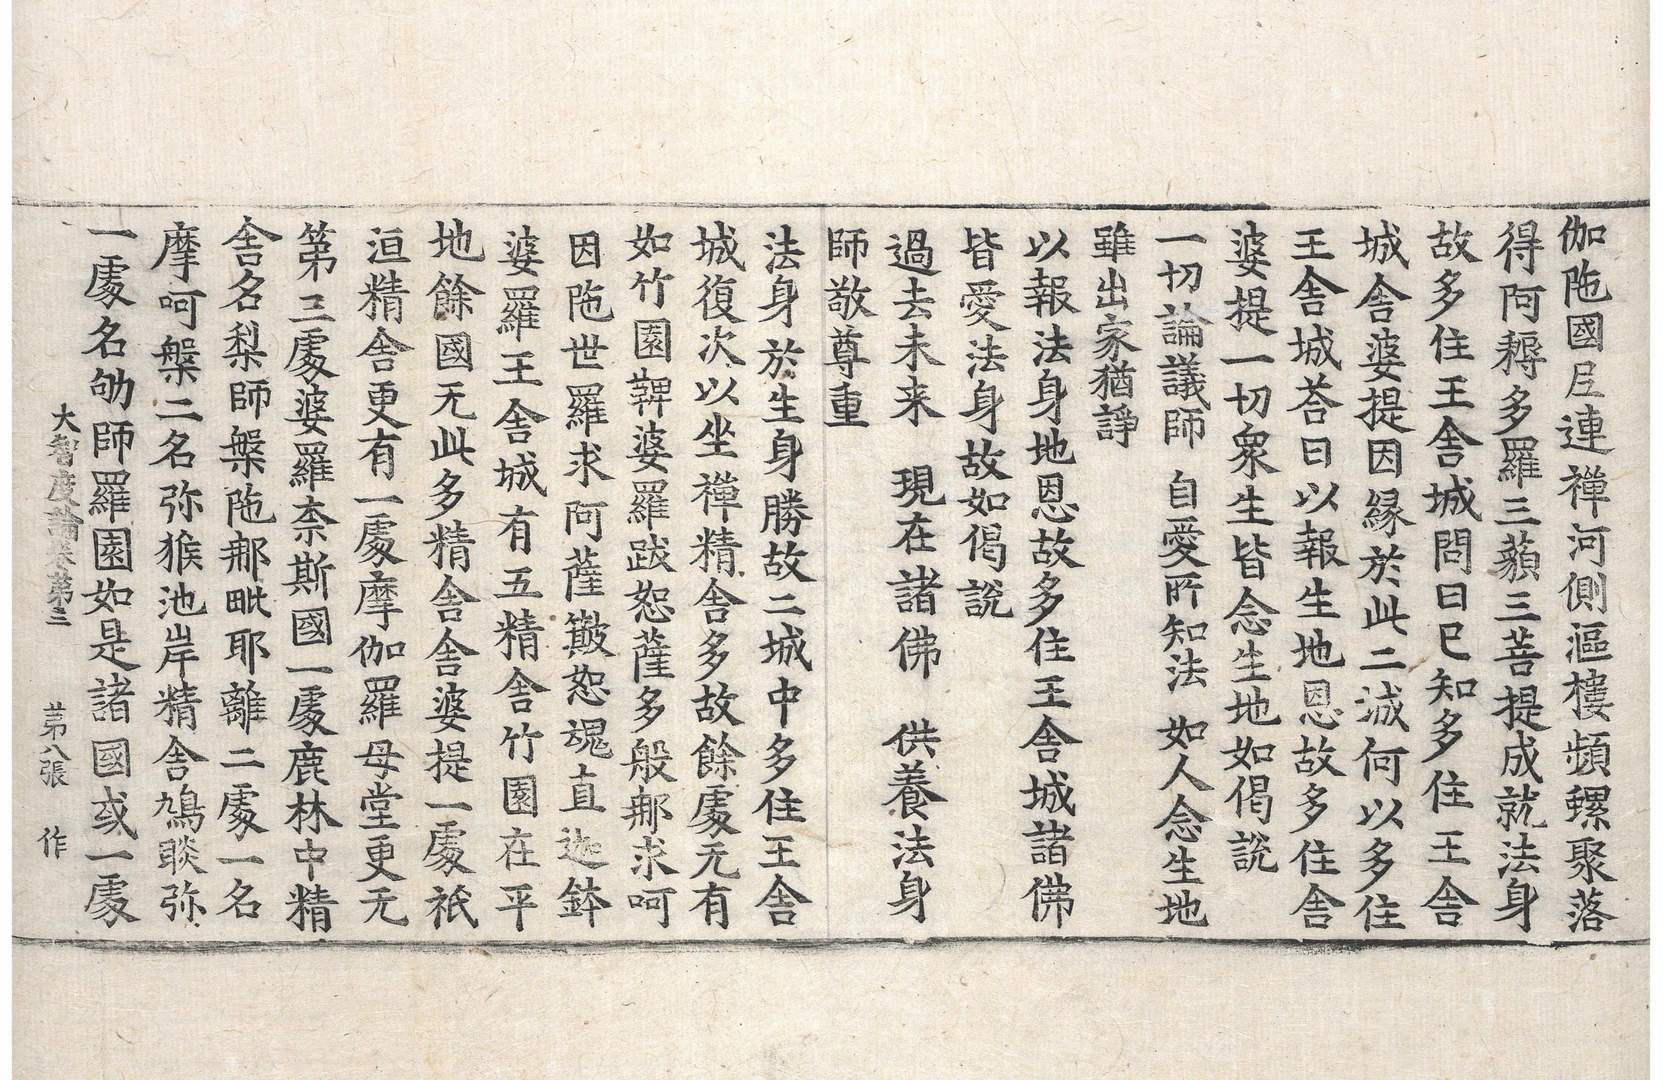 伽陁國𡰱連禪河側漚樓頻螺聚落
得阿耨多羅三藐三菩提成就法身
故多住王舍城問曰已知多住王舍
城舍婆提因縁於此二城何以多住
王舍城荅曰以報生地恩故多住舍
婆提一切衆生皆念生地如偈說
一切論議師 自愛所知法 如人念生地
雖出家猶諍
以報法身地恩故多住王舍城諸佛
皆愛法身故如偈說
過去未来 現在諸佛 供養法身
師敬尊重
法身於生身勝故二城中多住王舍
城復次以坐禪精舍多故餘處无有
如竹園鞞婆羅跋恕薩多般那求呵
因陁世羅求阿薩簸恕魂直迦鉢
婆羅王舍城有五精舍竹園在平
地餘國无此多精舍舍婆提一處祇
洹精舍更有一處摩伽羅母堂更无
第三處婆羅柰斯國一處鹿林中精
舍名梨師槃陁那毗耶離二處一名
摩呵槃二名弥猴池岸精舍鳩睒弥
一處名劬師羅園如是諸國或一處
大智度論卷第三 第八張 作